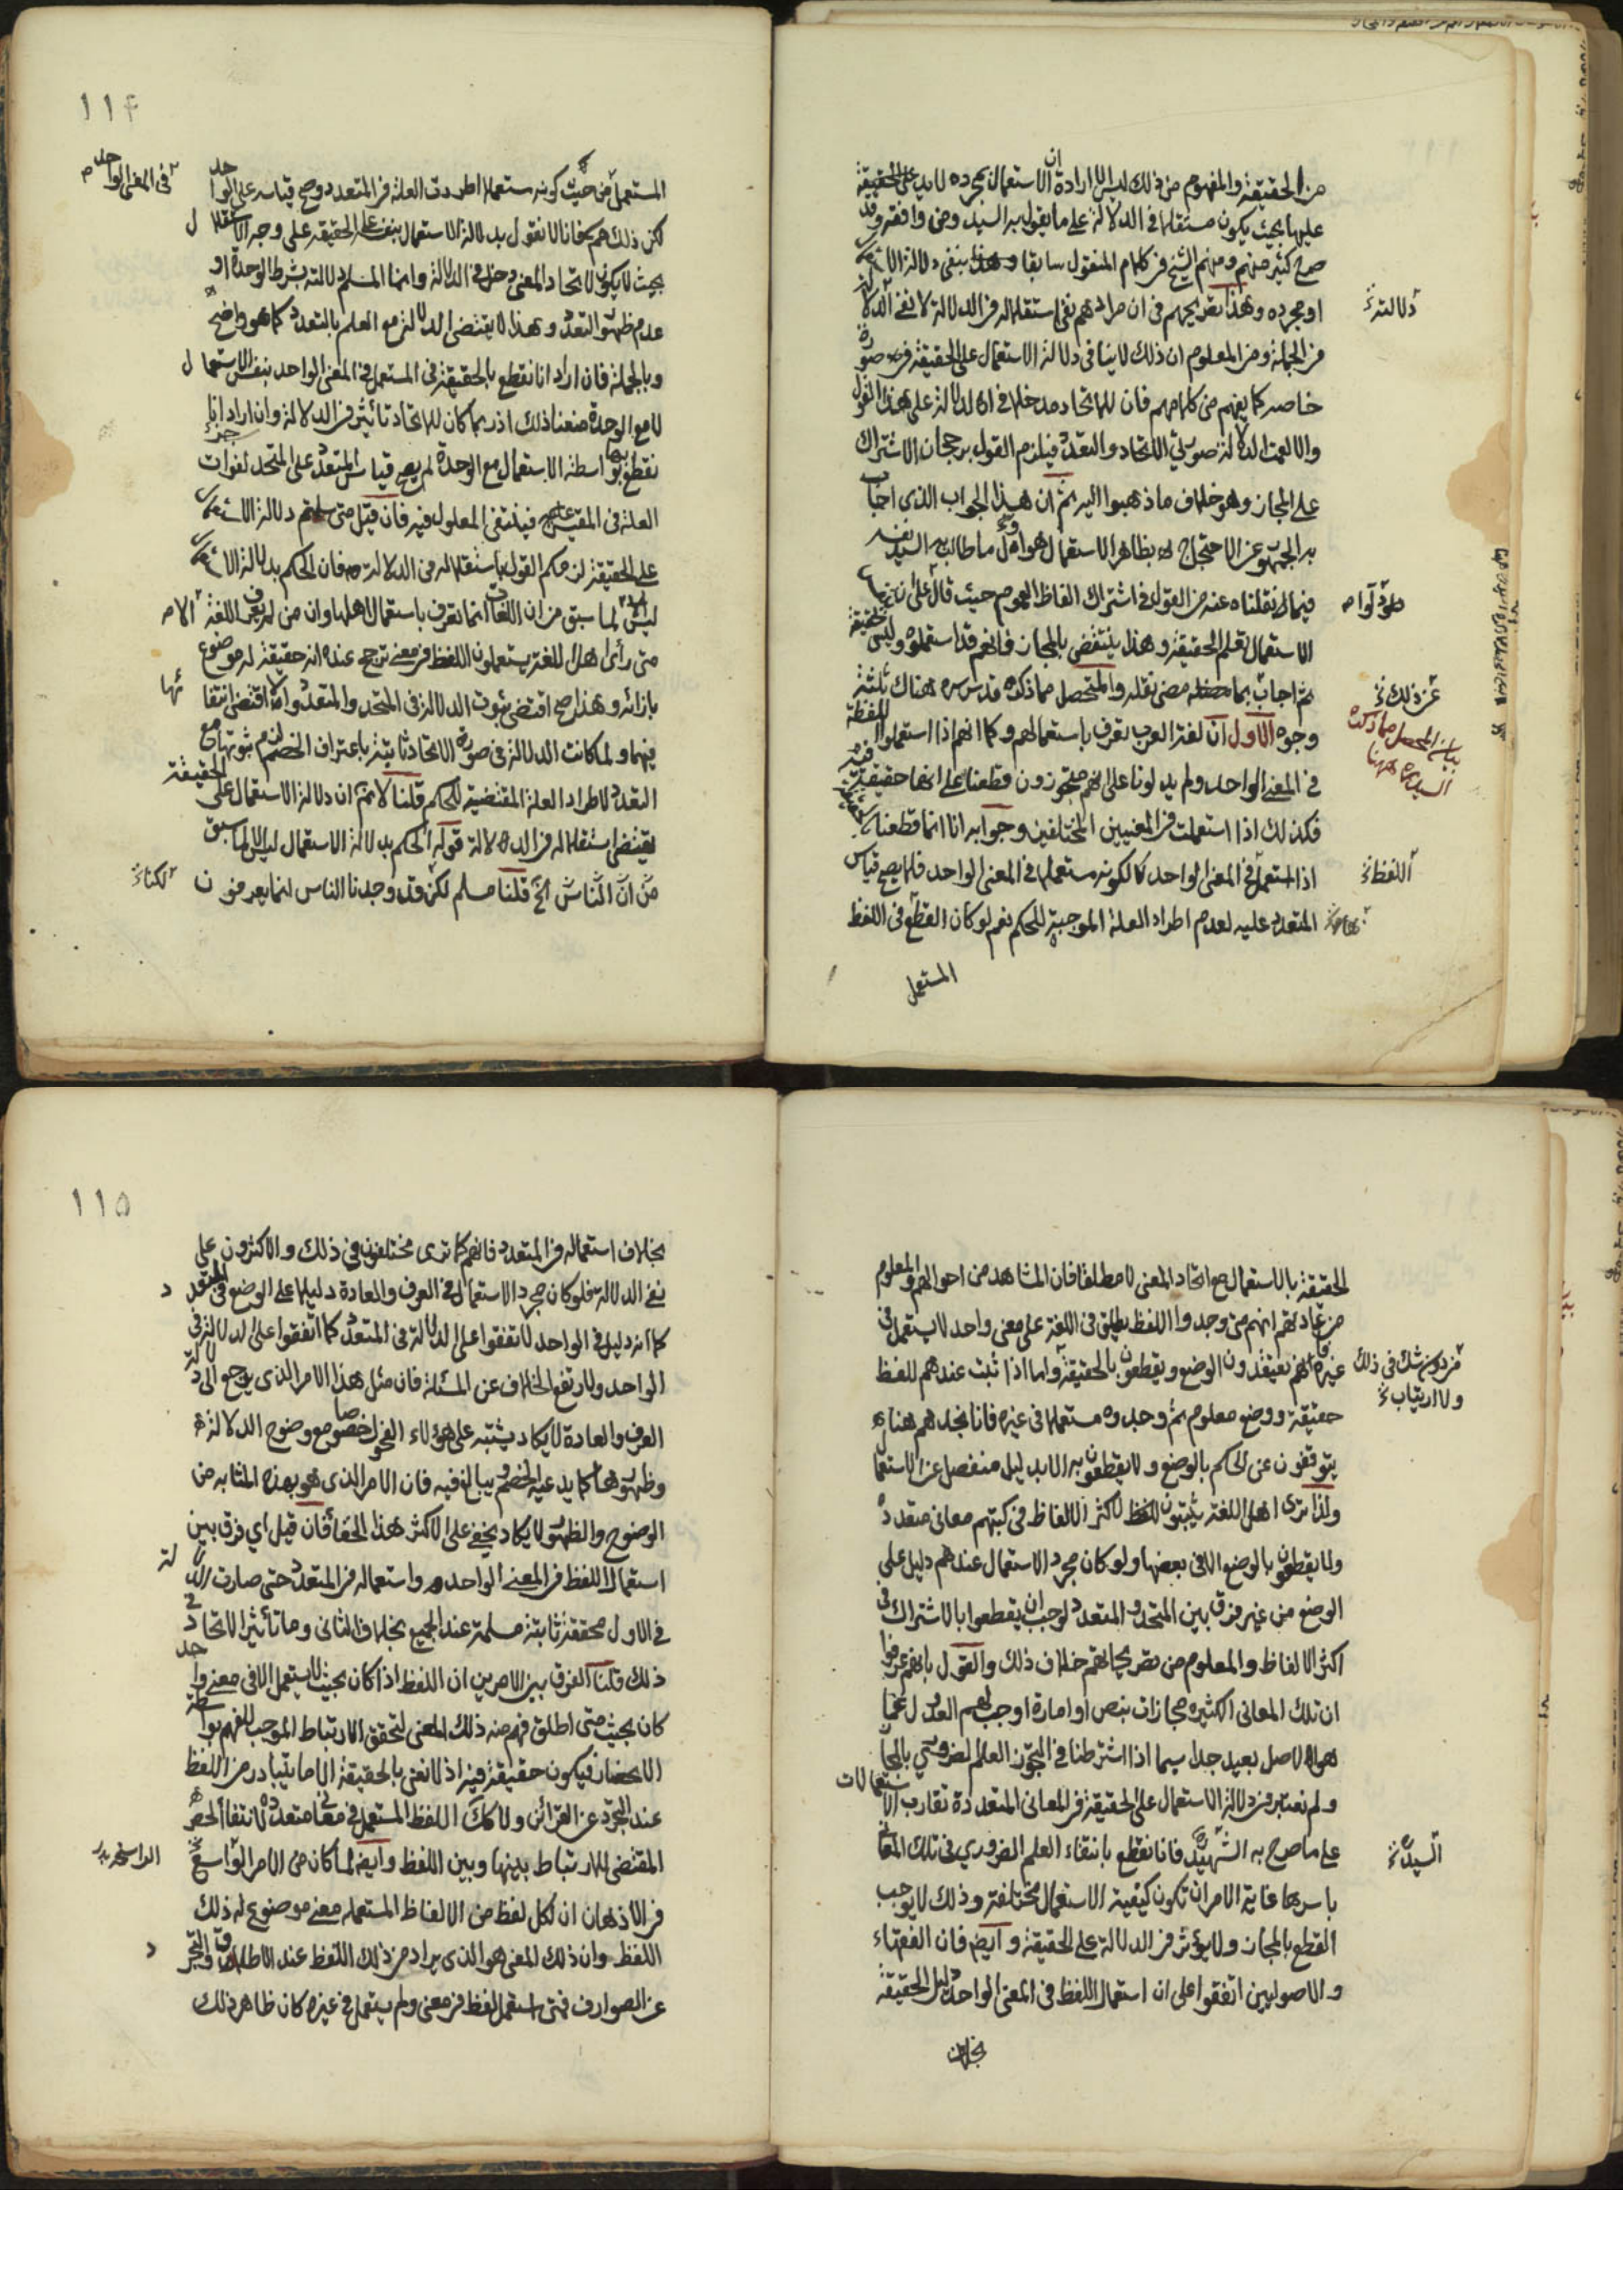 من الحقيقة والمفهوم من ذلك ليس الا ارادة ان الاستعمال بمجرده لا يدل على الحقيقة
عليها بحيث يكون مستقلا في الدلالة على ما يقول به السيد ومن وافقه وقد
صرح كثير منهم ومنهم الشيخ في كلام المنقول سابقا بنفي دلالة الاستعمال
او مجرده وهذا تصريحهم في ان مرادهم نفي استقلاله في الدلالة لا نفي الدلالة
دلالته
في الجملة ومن المعلوم ان ذلك لا ينافي دلالة الاستعمال على الحقيقة في صورة
خاصة كما يفهم من كلامهم فان للاتحاد مدخلا في الدلالة على هذا القول
والا لعمت الدلالة صورتي الاتحاد والتعدد فيلزم القول برجحان الاشتراك
على المجاز وهو خلاف ما ذهبوا اليه ثم ان هذا الجواب الذي اجاب
به الجمهور عن الاحتجاج بظاهر الاستعمال هو اول ما طالب به السيد نفسه
فيما نقلناه عنه من القول في اشتراك الفاظ العموم حيث قال
الاستعمال تعلم الحقيقة وهذا ينتقض بالمجاز فانهم قد استعملوه وليس بحقيقة
ثم اجاب بما مضى نقله والمتحصل مما ذكره قدس سره هناك ثلثة
عن ذلك
بيان المحصل مما ذكره السيد ره هنا
وجوه الاول ان لغة العرب تعرف باستعمالهم وكما انهم اذا استعملوا اللفظة
في المعنى الواحد ولم يدلونا على انهم متجوزون قطعنا على انها حقيقة فيه
فكذلك اذا استعملت في المعنيين المختلفين وجوابه انا انما قطعنا
اذا استعمل في المعنى الواحد لا لكونه مستعملا في المعنى الواحد فلا يصح قياس
اللفظ
المتعدد عليه لعدم اطراد العلة الموجبة للحكم نعم لو كان القطع في اللفظ
المستعمل
١١٤
المستعمل من حيث كونه مستعملا اطردت العلة في المتعدد وصح قياسه على الواحد
في المعنى الواحد
لكن ذلك هم فانا لا نقول بدلالة الاستعمال بنفسه على الحقيقة على وجه الاستقلال
بحيث لا يكون لاتحاد المعنى دخل في الدلالة وانما المسلم دلالته بشرط الوحدة او
عدم ظهور التعدد وهذا لا يقتضي الدلالة مع العلم بالتعدد كما هو واضح
وبالجملة فان اراد انا نقطع بالحقيقة في المستعمل في المعنى الواحد بنفس الاستعمال
لا مع الوحدة منعنا ذلك اذ ربما كان للاتحاد تاثير في الدلالة وان اراد انا
نقطع بها بواسطة الاستعمال مع الوحدة لم يصح قياس المتعدد على المتحد لفوات
العلة في المقيس فينتفي المعلول فيه فان قيل متى سلمتم دلالة الاستعمال
على الحقيقة لزمكم القول باستقلاله في الدلالة فان الحكم بدلالة الاستعمال
ليس الا لما سبق من ان اللغات انما تعرف باستعمال اهلها وان من لم يعرف اللغة
متى رأى اهل اللغة يستعملون اللفظ في معنى ترجح عنده انه حقيقة له موضوع
بازائه وهذا ان صح اقتضى ثبوت الدلالة في المتحد والمتعدد والا اقتضى انتفائها
فيهما ولما كانت الدلالة في صورة الاتحاد ثابتة باعتراف الخصم لزم ثبوتها مع
التعدد لاطراد العلة المقتضية للحكم قلنا لا نم ان دلالة الاستعمال على الحقيقة
يقتضي استقلاله في الدلالة قوله الحكم بدلالة الاستعمال ليس الا لما سبق
من ان الناس الخ قلنا مسلم لكن قد وجدنا الناس انما يعرفون
لكنا
الحقيقة بالاستعمال مع اتحاد المعنى لا مطلقا فان المشاهد من احوالهم والمعلوم
من عاداتهم انهم متى وجدوا اللفظ يطلق في اللغة على معنى واحد لا يستعمل في
غيره فانهم يعتقدون الوضع ويقطعون بالحقيقة واما اذا ثبت عندهم للفظ
من دون شك في ذلك ولا ارتياب
حقيقة ووضع معلوم ثم وجدوه مستعملا في غيره فانا نجدهم هناك
يتوقفون عن الحكم بالوضع ولا يقطعون به الا بدليل منفصل عن الاستعمال
ولذا ترى اهل اللغة يثبتون لاكثر الالفاظ في كتبهم معاني متعددة
ولا يقطعون بالوضع الا في بعضها ولو كان مجرد الاستعمال عندهم دليل على
الوضع من غير فرق بين المتحد والمتعدد لوجب ان يقطعوا بالاشتراك في
اكثر الالفاظ والمعلوم من تصريحاتهم خلاف ذلك والقول بانهم عرفوا
ان تلك المعاني الكثيرة مجازات بنص او امارة اوجب لهم العدول عما
هو الاصل بعيد جدا سيما اذا اشترطنا في التجوز العلم الضروري بالمجاز
ولم نعتبر في دلالة الاستعمال على الحقيقة في المعاني المتعددة تقارب الاستعمالات
على ما صرح به السيد فانا نقطع بانتفاء العلم الضروري في تلك المعاني
السيد
باسرها غاية الامر ان تكون كيفية الاستعمال مختلفة وذلك لا يوجب
القطع بالمجاز ولا يؤثر في الدلالة على الحقيقة وايضا فان الفقهاء
والاصوليين اتفقوا على ان استعمال اللفظ في المعنى الواحد دليل الحقيقة
بخلاف
١١٥
بخلاف استعماله في المتعدد فانهم كما ترى مختلفون في ذلك والاكثرون على
نفي الدلالة فلو كان مجرد الاستعمال في العرف والعادة دليلا على الوضع في المتعدد
كما انه دليل في الواحد لاتفقوا على الدلالة في المتعدد كما اتفقوا على الدلالة في
الواحد ولارتفع الخلاف عن المسئلة فان مثل هذا الامر الذي يرجع الى دلالة
العرف والعادة لا يكاد يشتبه على هؤلاء الفحول خصوصا مع وضوح الدلالة
وظهورها كما يدعيه الخصم ويبالغ فيه فان الامر الذي هو بهذه المثابة من
الوضوح والظهور لا يكاد يخفى على الاكثر هذا الخفا فان قيل اي فرق بين
استعمال اللفظ في المعنى الواحد واستعماله في المتعدد حتى صارت الدلالة
في الاول محققة ثابتة مسلمة عند الجميع بخلاف الثاني وما تأثير الاتحاد في
ذلك قلنا الفرق بين الامرين ان اللفظ اذا كان بحيث لا يستعمل الا في معنى واحد
كان بحيث متى اطلق فهم منه ذلك المعنى لتحقق الارتباط الموجب للفهم بواسطة
الانحصار فيكون حقيقة فيه اذ لا نعني بالحقيقة الا ما يتبادر من اللفظ
عند التجرد عن القرائن ولا كك اللفظ المستعمل في معاني متعددة لانتفاء الحصر
المقتضي للارتباط بينها وبين اللفظ وايضا لما كان من الامر الواسخ
الراسخ
في الاذهان ان لكل لفظ من الالفاظ المستعملة معنى موضوع له ذلك
اللفظ وان ذلك المعنى هو الذي يراد من ذلك اللفظ عند الاطلاق والتجرد
عن الصوارف فمتى استعمل لفظ في معنى ولم يستعمل في غيره كان ظاهر ذلك